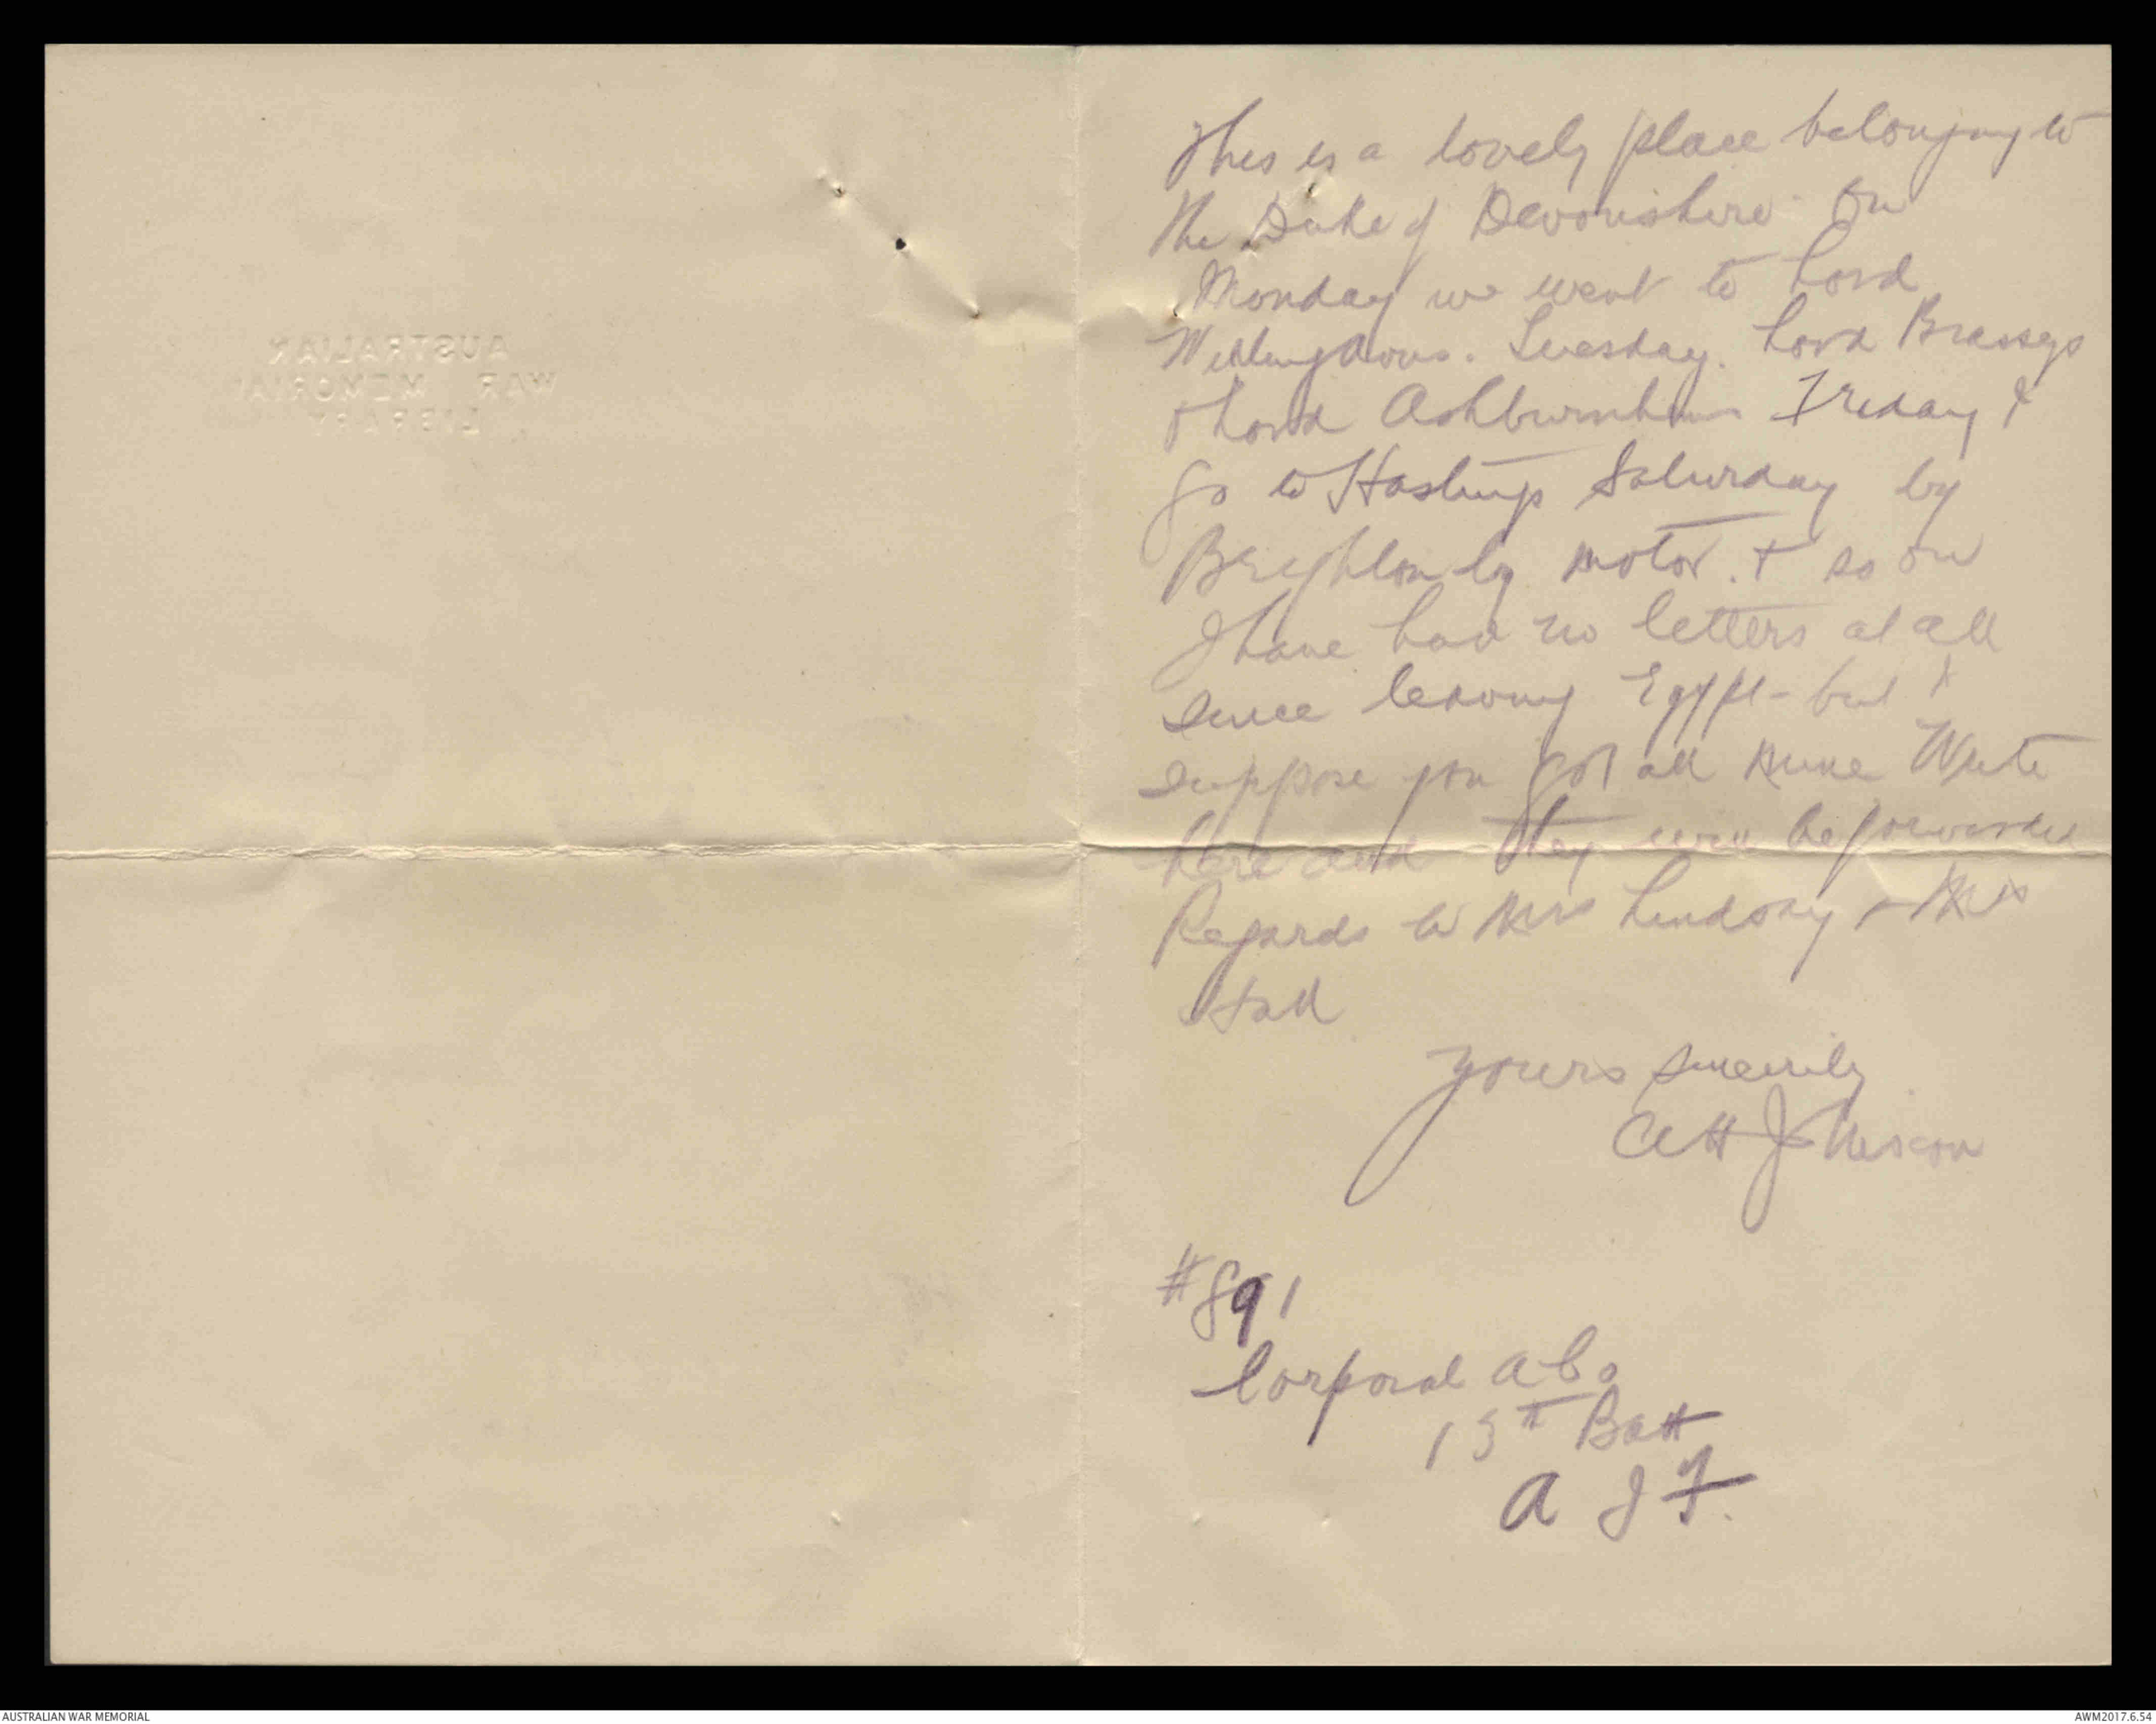 AUSTRALIAN
WAR MEMORIAL
LIBRARY
This is a lovely place belonging to
the Duke of Devonshire. On
Monday we went to Lord
Willingdons. Tuesday. Lord Brasseys
& Lord Ashburnham Friday &
go to Hastings Saturday by
Brighton by motor. & so on
I have had no letters at all
since leaving Egypt - but I
suppose you got all mine Write
here and they will be forwarded
Regards to Mrs Lindsay & Miss
Hall
Yours sincerely
#891
Corporal A Co
13th Batt
A I F.
AUSTRALIAN WAR MEMORIAL
AWM2017.6.54